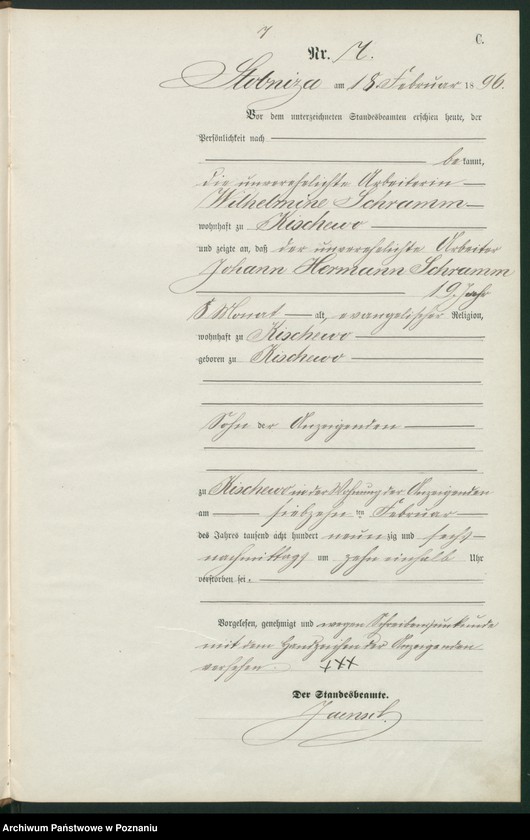 7
C.
Nr. 7.
Slobniza am 18 Februar 1896.
Vor dem unterzeichneten Standesbeamten erschien heute, der
Persönlichkeit nach
bekannt,
die unverehelichte Arbeiterin
Wilhelmine Schramm
wohnhaft zu Kischewo
und zeigte an, daß der unverehelichte Arbeiter
Johann Hermann Schramm
19 Jahr
Monat alt, evangelischer Religion,
wohnhaft zu Kischewo
geboren zu Kischewo
Sohn der Anzeigenden
zu Kischewo in der Wohnung der Anzeigenden
am siebzehn ten Februar
des Jahres tausend acht hundert neun zig und sechs
nachmittags um zehn einhalb Uhr
verstorben sei.
Vorgelesen, genehmigt und wegen Schreibensunkunde
mit dem Handzeichen der Anzeigenden
versehen. +++
Der Standesbeamte.
Jaensch.
Archiwum Państwowe w Poznaniu